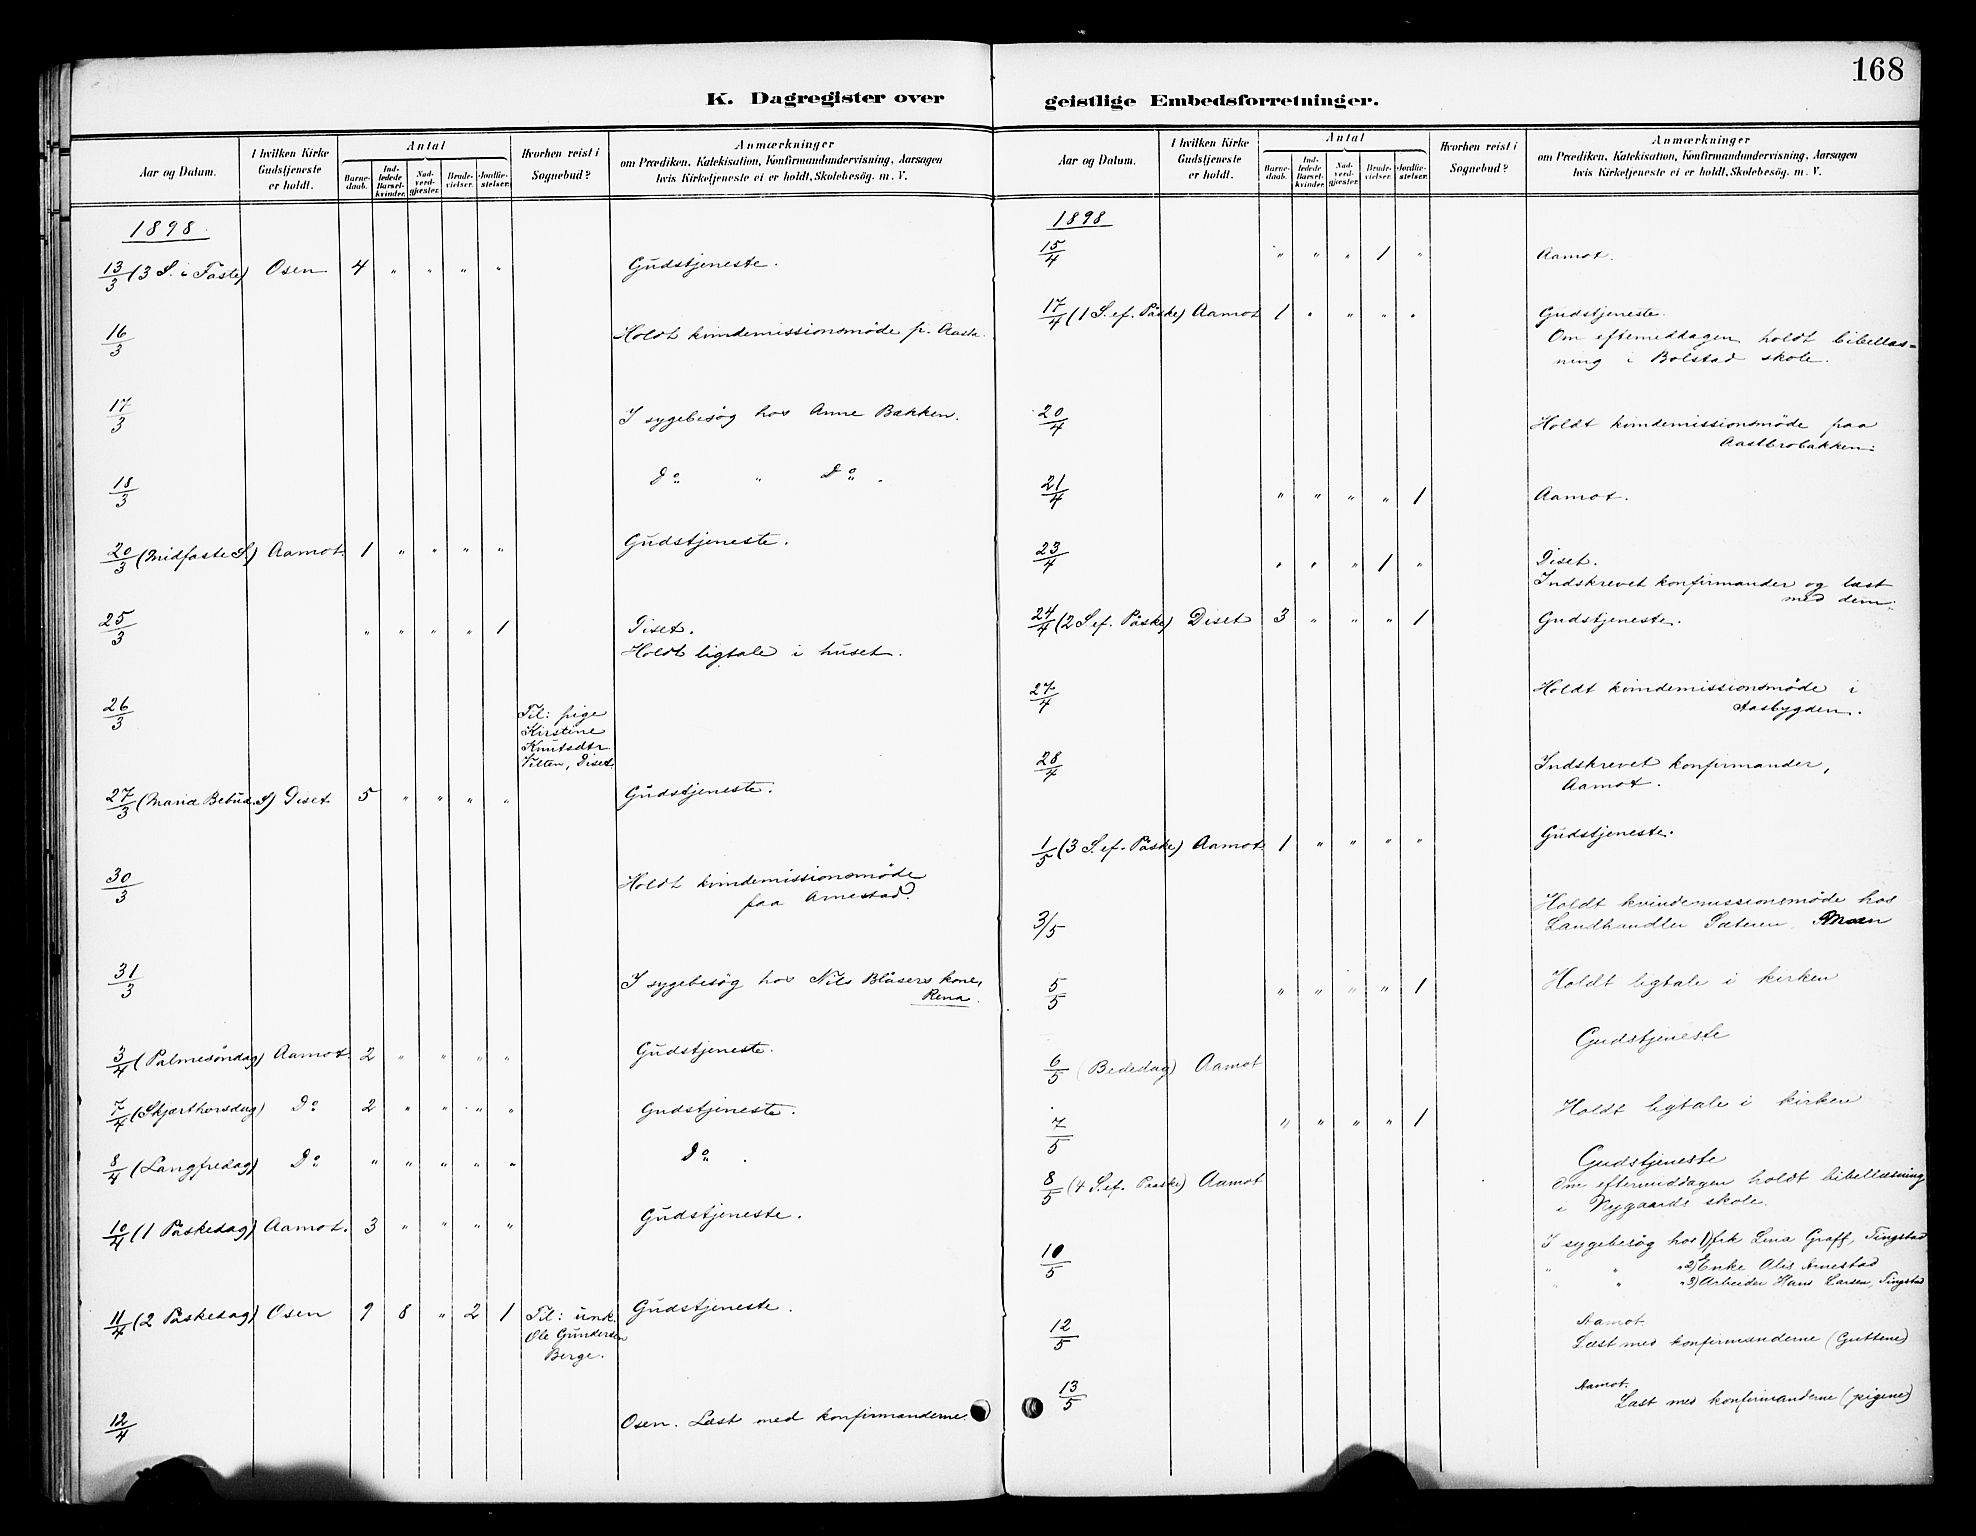 168
K. Dagregister over geistlige Embedsforretninger.
Aar og Datum. I hvilken Kirke Gudstjeneste er holdt. Antal Barnedaab. Indledede Barselkvinder. Nadverdgjester. Brudevielser. Jordfæstelser. Hvorhen reist i Sognebud? Anmærkninger om Prædiken, Katekisation, Konfirmandundervisning, Aarsagen hvis Kirketjeneste ei er holdt, Skolebesøg. m. V.
1898
13/3 (3 S. i Faste) Osen 4 " " " " Gudstjeneste.
16/3 Holdt kvindemissionsmøde p. Aasta.
17/3 I sygebesøg hos Anne Bakken.
18/3 Do " Do.
20/3 (Midfaste S) Aamot. 1 " " " " Gudstjeneste.
25/3 " " " " 1 Diset.
Holdt ligtale i huset.
26/3 Til: pige
Kirstine
Knutsdtr.
Vilten, Diset.
27/3 (Maria Bebud. S) Diset 5 " " " " Gudstjeneste.
30/3 Holdt kvindemissionsmøde
paa Arnestad.
31/3 I sygebesøg hos Nils Blåsers kone,
Rena.
3/4 (Palmesøndag) Aamot. 2 " " " " Gudstjeneste.
7/4 (Skjærthorsdag) Do 2 " " " " Gudstjeneste.
8/4 (Langfredag) Do " " " " " Do.
10/4 (1 Påskedag) Aamot. 3 " " " " Gudstjeneste.
11/4 (2 Påskedag) Osen 9 8 " 2 1 Til: unk. Gudstjeneste.
Ole Gundersen
Berge.
12/4 Osen. Læst med konfirmanderne.
Aar og Datum. I hvilken Kirke Gudstjeneste er holdt. Antal Barnedaab. Indledede Barselkvinder. Nadverdgjester. Brudevielser. Jordfæstelser. Hvorhen reist i Sognebud? Anmærkninger om Prædiken, Katekisation, Konfirmandundervisning, Aarsagen hvis Kirketjeneste ei er holdt, Skolebesøg. m. V.
1898
15/4 " " " 1 " Aamot.
17/4 (1 S. ef. Påske) Aamot 1 " " " " Gudstjeneste.
Om eftemeddagen holdt bibellæs=
ning i Bolstad skole.
20/4 Holdt kvindemissionsmøde paa
Aastbrobakken.
21/4 " " " " 1 Aamot.
23/4 " " " 1 " Diset.
Indskrevet konfirmander og læst
med dem.
24/4 (2 S. ef. Påske) Diset 3 " " " 1 Gudstjeneste.
27/4 Holdt kvindemissionsmøde i
Aasbygden.
28/4 Indskrevet konfirmander,
Aamot.
1/5 (3 S. ef. Påske) Aamot. 1 " " " " Gudstjeneste.
3/5 Holdt kvindemissionsmøde hos
Landhandler Sæteren, Moen
5/5 " " " " 1 Holdt ligtale i kirken
6/5 (Bededag) Aamot Gudstjeneste
7/5 " " " " 1 Holdt ligtale i kirken
8/5 (4 S. ef. Paaske) Aamot Gudstjeneste
Om eftermiddagen holdt bibellæsning
i Nygaards skole.
10/5 I sygebesøg hos 1) frk Lina Graff, Tingstad
" " " 2) Enke Alis Arnestad
" " " 3) Arbeider Hans Larsen, Tingstad
12/5 Aamot.
Læst med konfirmanderne (Guttene)
13/5 Aamot.
Læst med konfirmanderne (pigene)